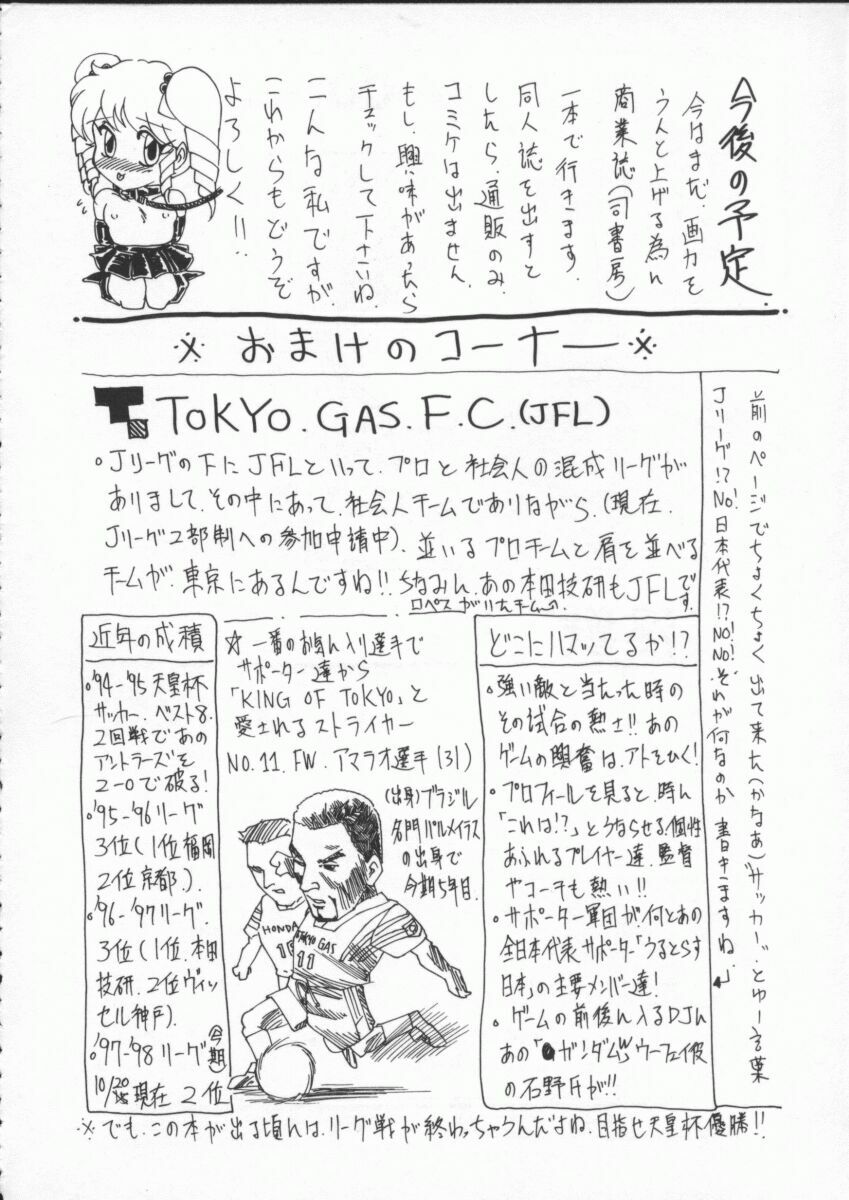 今後の予定
今はまだ、画力を
うんと上げる為に
商業誌(司書房)
一本で行きます。
同人誌を出すと
したら、通販のみ。
コミケは出ません。
もし、興味があったら
チェックして下さいね。
こんな私ですが、
これからもどうぞ
よろしく!!
※おまけのコーナー※
前のページでちょくちょく出て来た(かなあ)“サッカー”とゆー言葉
Jリーグ!?NO!日本代表!?NO!NO!それが何なのか書きますね。
TOKYO.GAS.F.C.(JFL)
Jリーグの下にJFLといって、プロと社会人の混成リーグが
ありまして、その中にあって、社会人チームでありながら、(現在、
Jリーグ2部制への参加申請中)、並いるプロチームと肩を並べる
チームが、東京にあるんですね!!ちなみに、あの本田技研もJFLです。
ロペスがいたチーム
近年の成積
'94-'95天皇杯
サッカー、ベスト8。
2回戦であの
アントラーズを
2-0で破る!
'95-'96リーグ
3位(1位福岡
2位京都)。
'96-'97リーグ。
3位(1位、本田
技研、2位ヴィッ
セル神戸)。
'97-'98リーグ(今期)
10/20現在2位
☆一番のお気に入り選手で
サポーター達から
「KING OF TOKYO」と
愛されるストライカー
NO.11.FW.アマラオ選手(31)
(出身)ブラジル
名門パルメイラス
の出身で
今期5年目。
HONDA
10
TOKYO GAS
11
どこにハマッてるか!?
強い敵と当たった時の
その試合の熱さ!!あの
ゲームの興奮は、アトをひく!
プロフィールを見ると、時に
「これは!?」とうならせる、個性
あふれるプレイヤー達、監督
やコーチも熱い!!
サポーター軍団が、何とあの
全日本代表サポーター「うるとらす
日本」の主要メンバー達!
ゲームの前後に入るDJに
あの「ガンダムW」ウーフェイ役
の石野氏が!!
※でも、この本が出る頃には、リーグ戦が終わっちゃうんだよね、目指せ天皇杯優勝!!